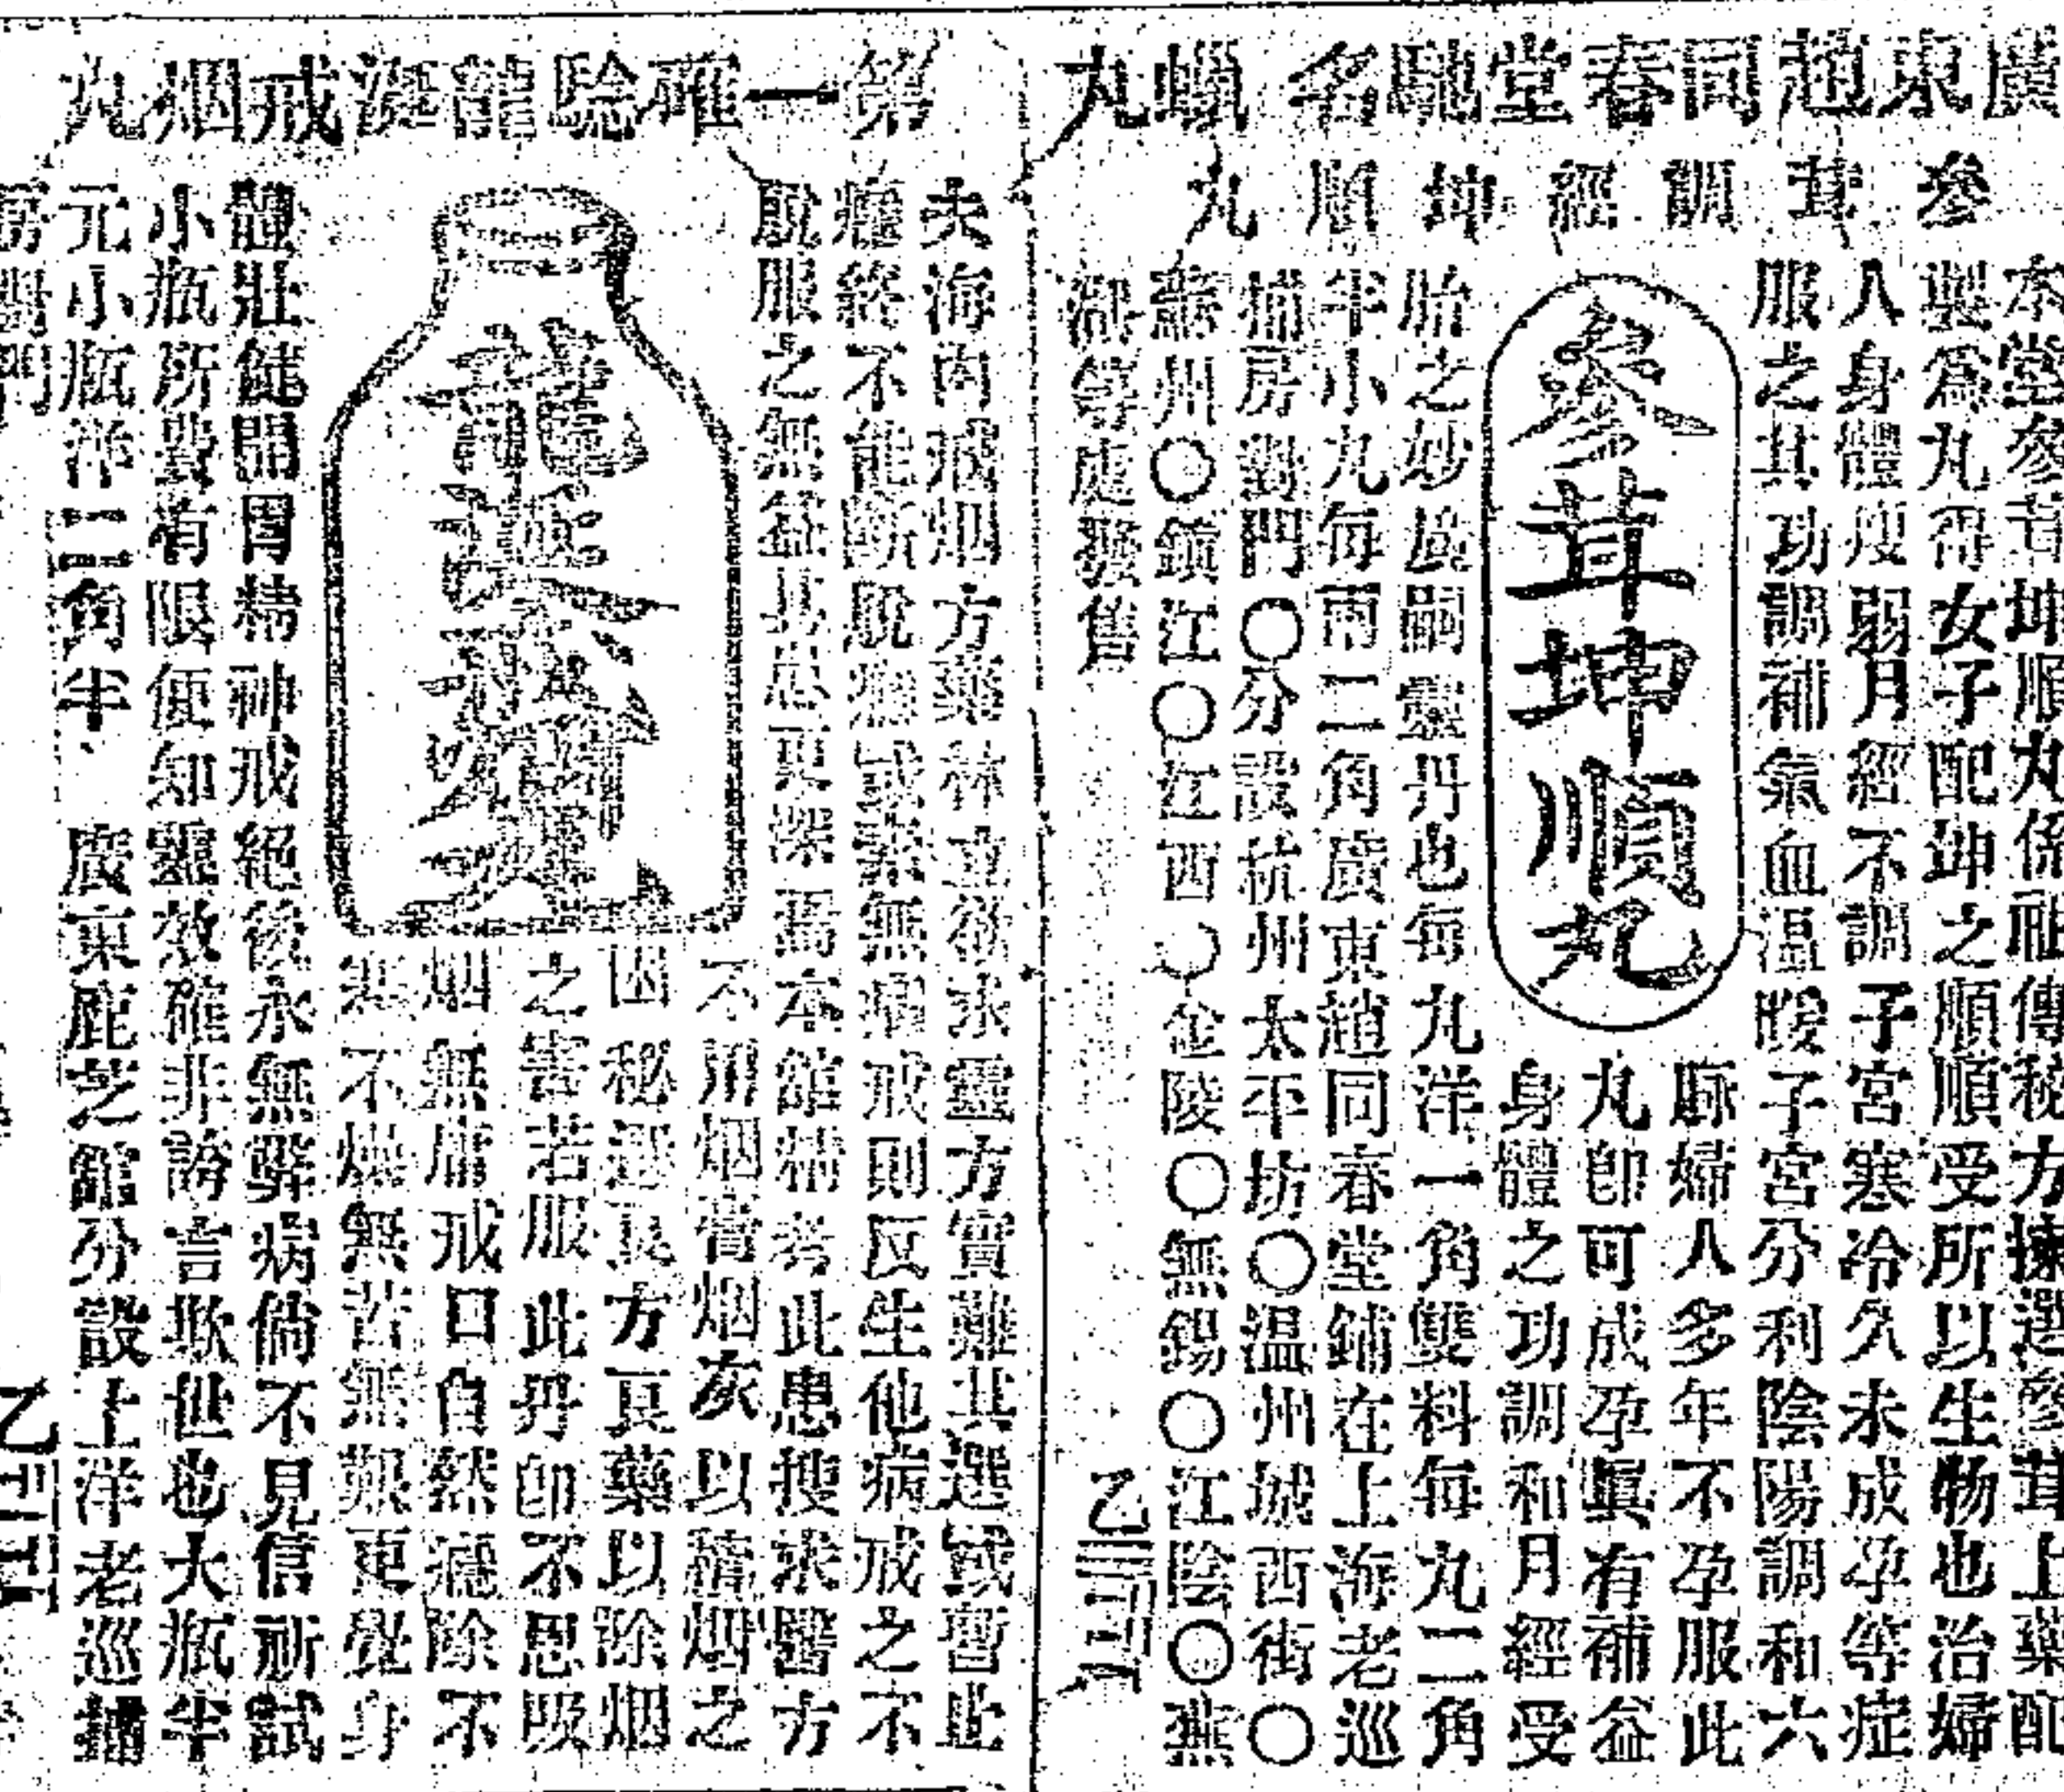 廣東趙同春堂馳名蠟丸
參茸調經坤順丸
本堂參茸坤順丸係祖傳秘方揀選參茸上藥配
製爲丸得女子配坤之順順受所以生物也治婦
人身體瘦弱月經不調子宮寒冷久未成孕等症
服之其功調補氣血温暖子宮分利陰陽調和六
脉婦人多年不孕服此
丸卽可成孕眞有補益
身體之功調和月經受
參茸坤順丸
胎之妙廣嗣靈丹也每丸洋一角雙料每丸二角
半小丸每兩二角廣東趙同春堂鋪在上海老巡
捕房對門〇分設杭州太平坊〇温州城西街〇
蘇州〇鎮江〇江西〇金陵〇無錫〇江陰〇蕪
湖等處發售
乙三三
第一確驗龍涎戒烟丸
夫海內戒烟方藥林立欲求靈方實難其選或暫止
癮終不能斷脫癮或勢無癮戒則反生他病戒之不
脫服之無益其患更深焉本舘精考此患搜求醫方
不用烟膏烟灰以積烟之
因秘遵良方真藥以除烟
之害若服此丹卽不思吸
烟無庸戒口自然癮除不
不燥無苦無艱更覺身
體壯健開胃精神戒絕後永無弊病倘不見信祈試
小瓶所費有限便知靈效確非誇言欺世也大瓶半
元小瓶洋一角半 廣東鹿芝舘分設上洋老巡捕
房對門